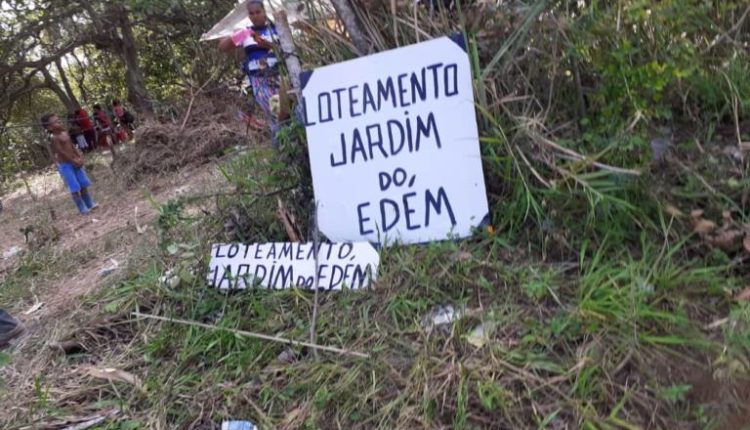 LOTEAMENTO
JARDIM
DO,
EDÉM
LOTEAMENTO,
JARDIM DO EDEM